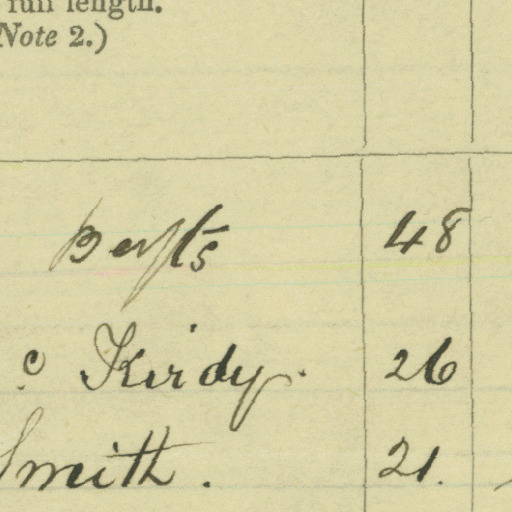 full length.
Note 2.)
48
c Kirdy. 26
Smith. 21.